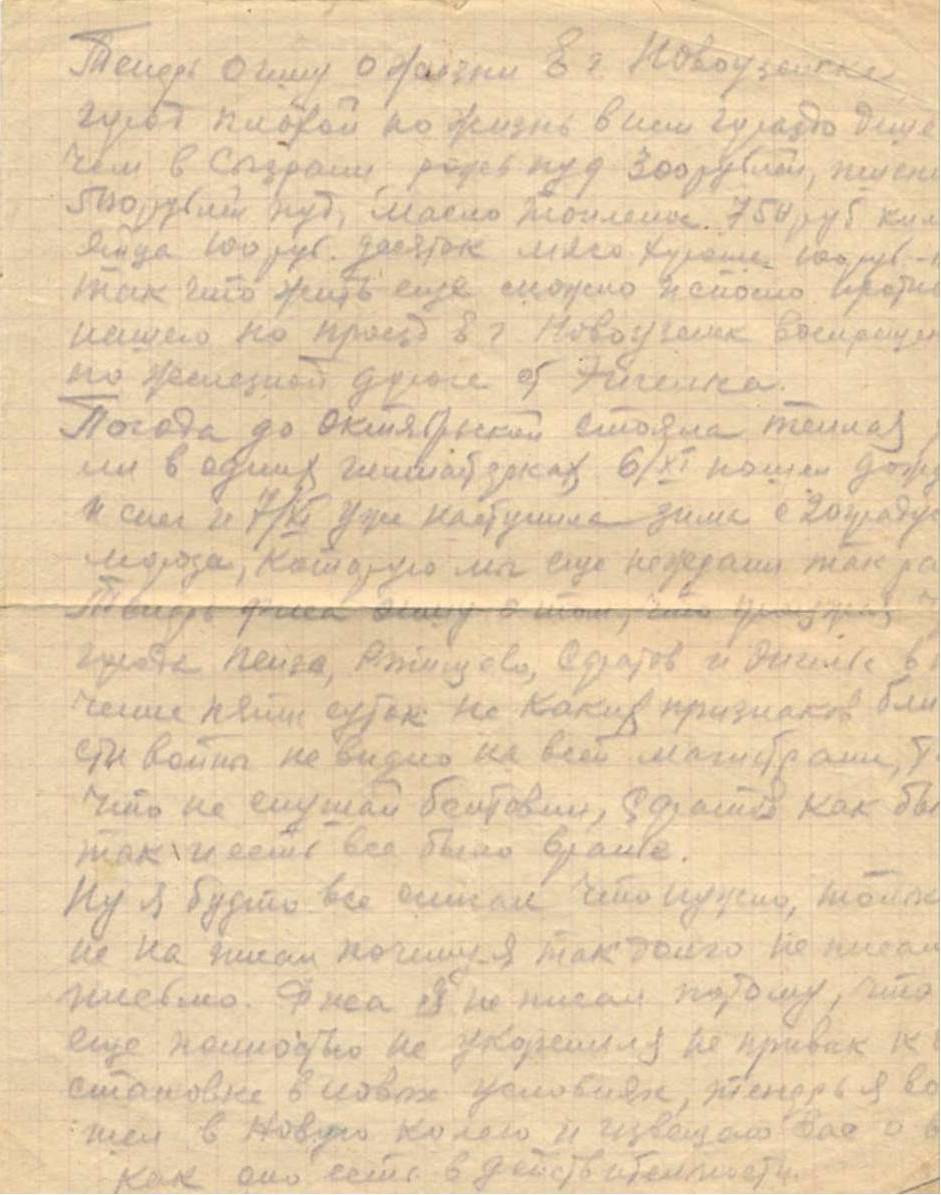 Теперь опишу о жизни в г. Новоузенске
город плохой но жизнь в нем гораздо деше
чем в Сызрани рожь пуд 300 рублей, пшени
500 рублей пуд, масло топленое 750 руб кил
яйца 100 руб. десяток мясо хорошее 100 руб
так что жить еще можно против
нашего но проезд в г Новоузенск воспрещен
по железной дороге от Энгельса.
Погода до октябрьской стояла теплая
ли в одних гимнастерках 6/XI пошел дождь
и снег и 7/XI уже наступила зима с 20 градус
мороза, которую мы еще не ждали так ра
Теперь Фиса опишу о том, что проезжая
города Пенза, Ртищево, Саратов и Энгельс в
чение пяти суток не каких признаков бли
сти войны не видно на всей магистрали, т
что не слушай болтовни, Саратов как бы
так и есть все было вранье.
Ну я будто все описал что нужно, только
не на писал почему я так долго не писал
письмо. Фиса я не писал потому, что
еще полностью не укоренился не привык к
становке в новых условиях, теперь я во
шел в новую колею и извещаю Вас о
как оно есть в действительности.